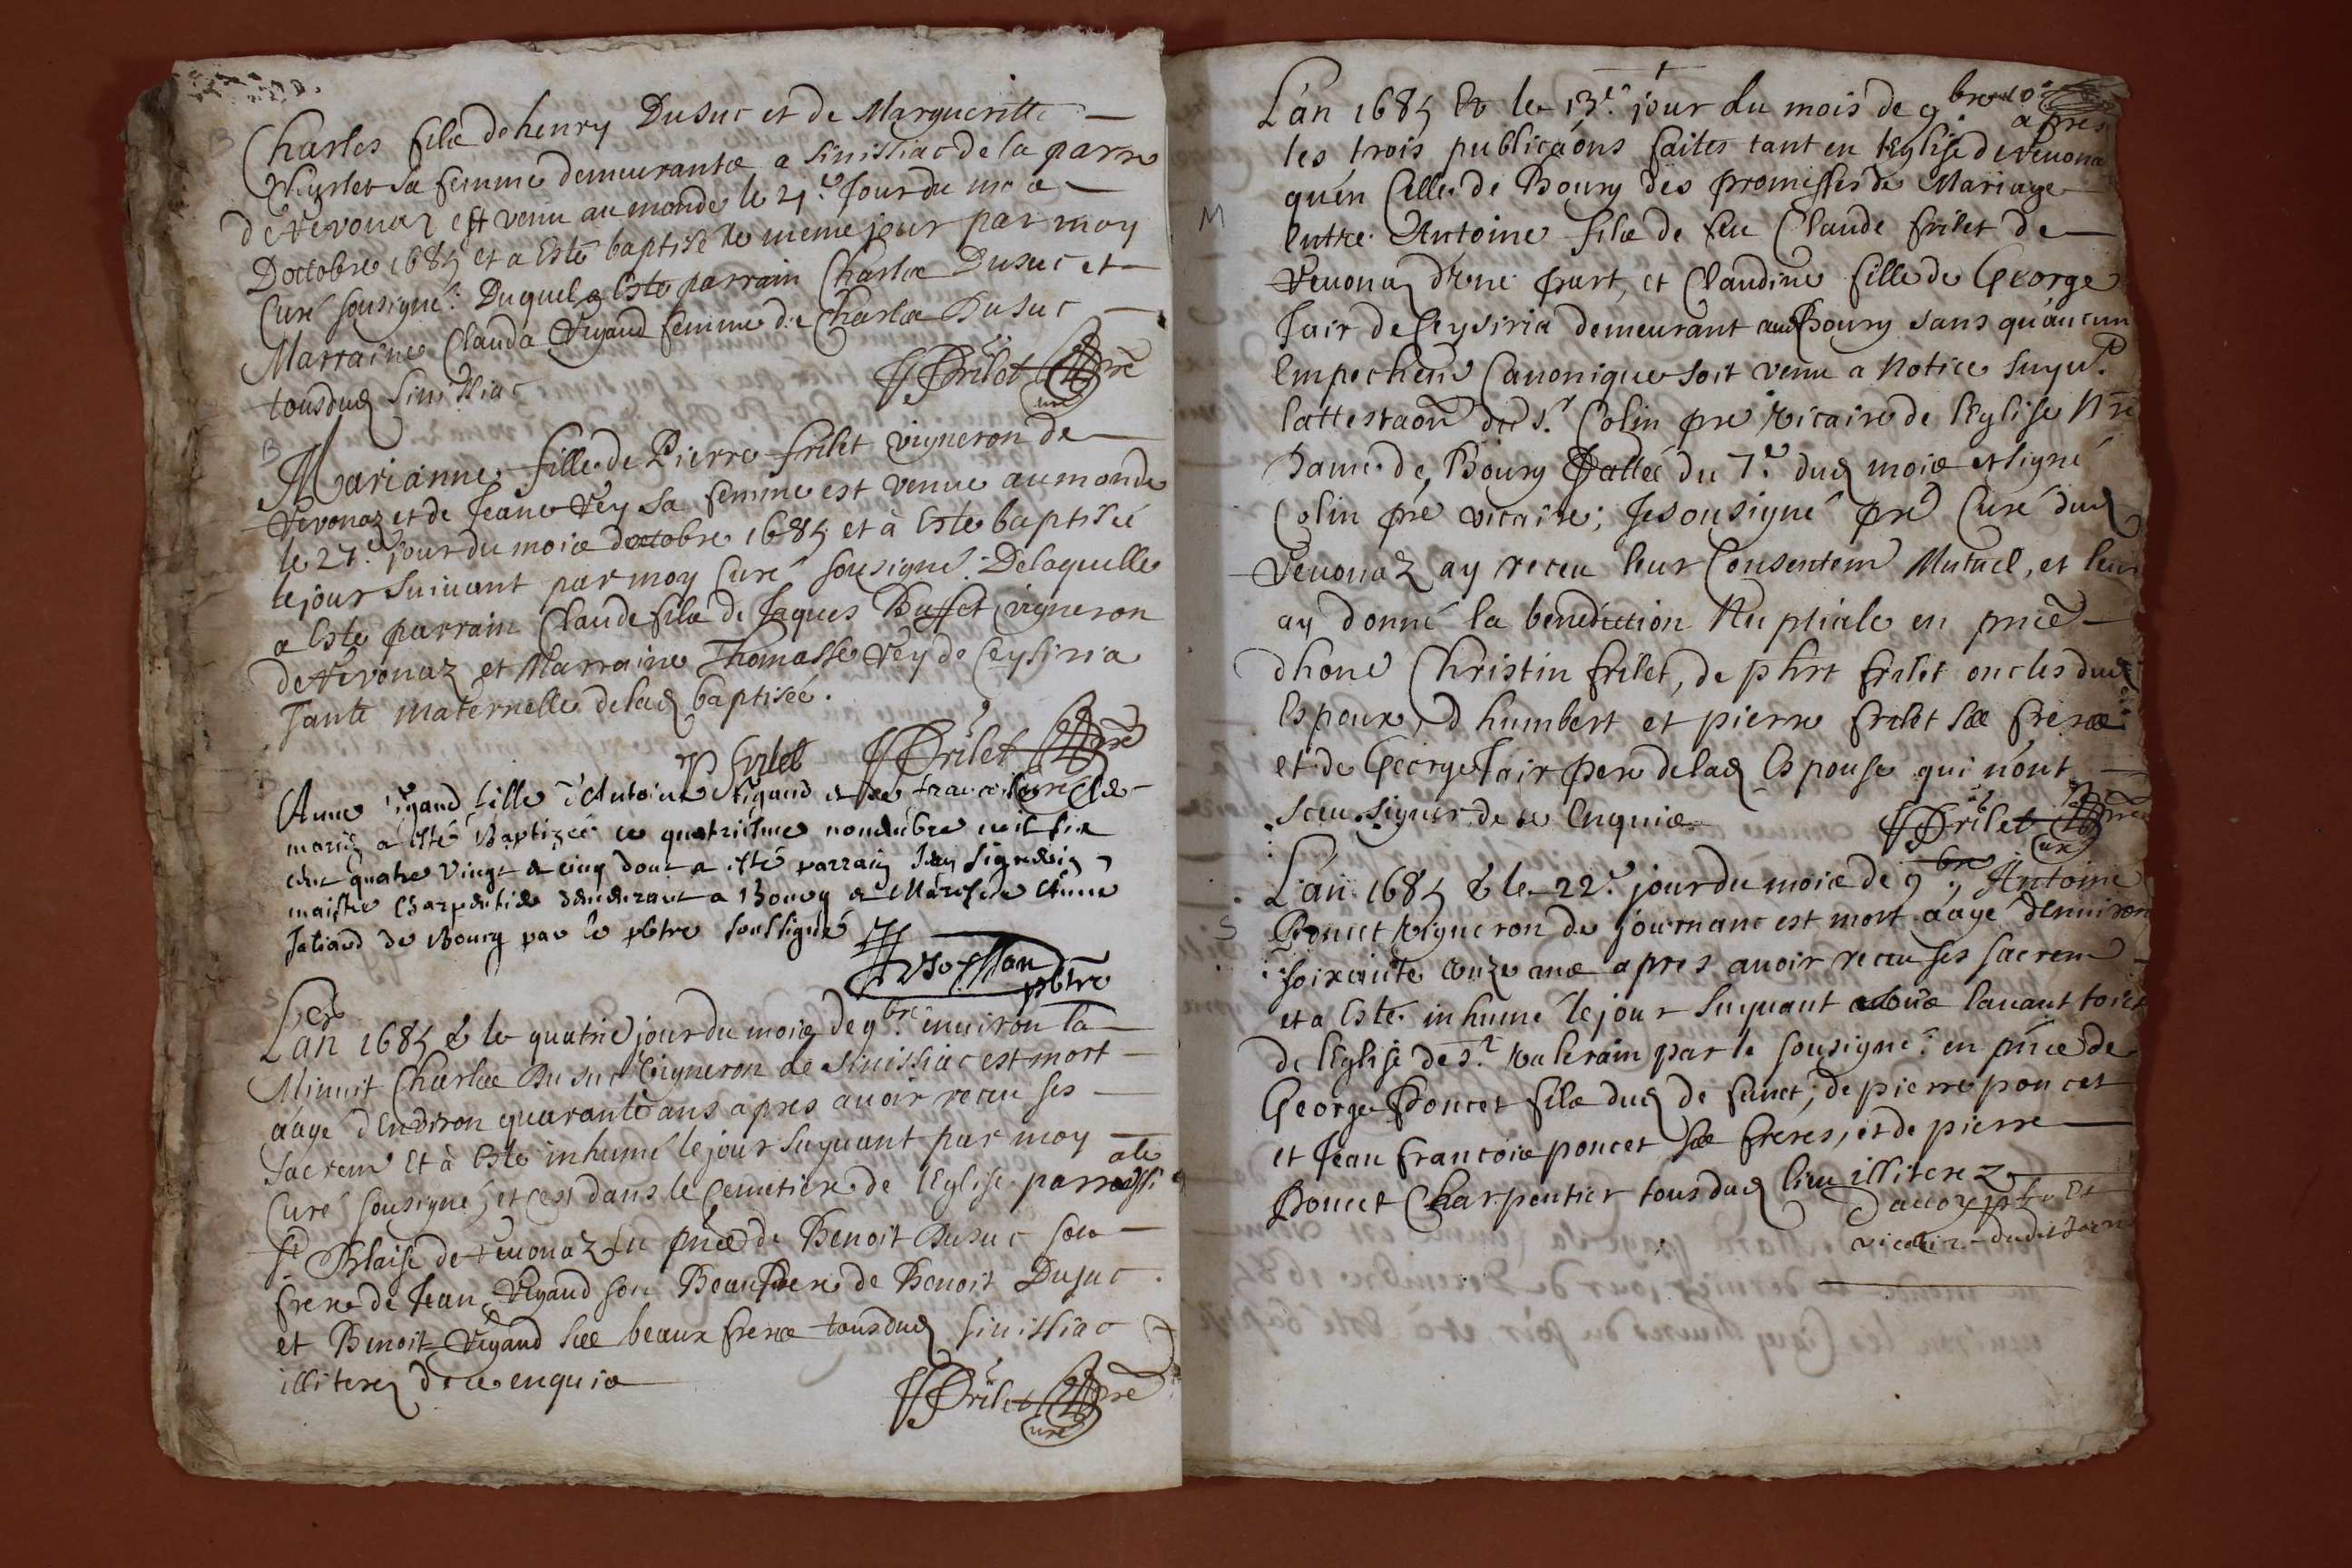 B
Charles fils de henry Dusuc et de Margueritte
sa femme demeurants a Sinissiac de la parre
de Revonaz est venu au monde le 21.e Jour du mois
Doctobre 1685 et a Esté baptisé le meme jour par moy
Curé sousigné: Duquel a Esté parrain Charles Dusuc et
Marraine Clauda Vigand femme de Charles Dusuc
tousdud Sinissiac
Frilet pre
Curé
B
Marianne fille de Pierre frilet vigneron de
Revonaz et de Jeane Rey sa femme est venue au monde
le 27.e jour du mois doctobre 1685 et à Esté baptisée
le jour suiuant par moy Curé sousigné. De laquelle
a Esté parrain Claude fils de Jaques Buffet vigneron
de Revonaz et Marraine Thomasse Rey de Ceysiria
Tante maternelle delad baptisée.
P frilet Frilet pre
Anne Vigand fille d'Antoine Vigand et de
mariez a esté Baptizée ce quatriesme nouembre mil six
cent quatre vingt et cinq dont a esté parrain
maistre Charpentier demeurant a Bourg et Mareine Anne
Jaliaud de Bourg par le pbtre soussigné
pbtre
S
L'an 1685 & le quatrie jour du mois de 9bre enuiron la
Minuit Charles Dusuc Vigneron de Sinissiac est mort
aágé d'Environ quarante ans apres auoir receu ses
sacrem Et à Esté inhumé le jour suyuant par moy
Curé sousigné, et c'est dans le Cemetiere de l'Eglise parrossiale
St Blaise de reuonaz En pnce de Benoit Dusuc son
frere de Jean Vigand son Beaufrere de Benoit Dusuc
et Benoit Vigand ses beaux freres tousdud sinissiac
illiterez de ce enquis
Frilet pre
Curé
L'an 1685 & le 13.e jour du mois de 9.bre apres
les trois publicaóns faites tant en l'Eglise de Reuona
qu'en Celle de Bourg des promesses de Mariage
M
Entre Antoine fils de feu Claude frilet de
Reuonaz d'Une part, et Claudine fille de George
Tair de Ceysiria demeurant aud Bourg sans qu'aucun
Empechem Canonique soit venu a Notice suyu.t
lattestaon de s.r Colin pre vicaire de l'Eglise Nre
Dame de Bourg Dattée du 7.e dud mois et signé
Colin pre vicaire; Je sousigné pre Curé dud
Reuonaz ay receu leur Consentem Mutuel, et leur
ay donné la benediction Nuptiale en pnce
dhone Christin frilet, de phrt frilet oncles dud
Espoux, d'humbert et pierre frilet ses freres
et de George Tair pere delad Espouse qui n'ont
sceu signer de ce Enquis
Frilet pre
Curé
L'an 1685 & le 22.e jour du mois de 9bre, Antoine
S
Poncet vigneron de journanc est mort aágé d'enuiron
soixante onze ans apres auoir receu ses sacrem
et a Esté inhumé le jour suyuant soûs lauant toict
de l'Eglise de s.t Valerain par le sousigné. en pnce de
George Poncet fils dud de funct; de pierre poncet
et Jean francois poncet ses freres, et de pierre
Poncet Charpentier tousdud lieu illiterez
vicaire dudit